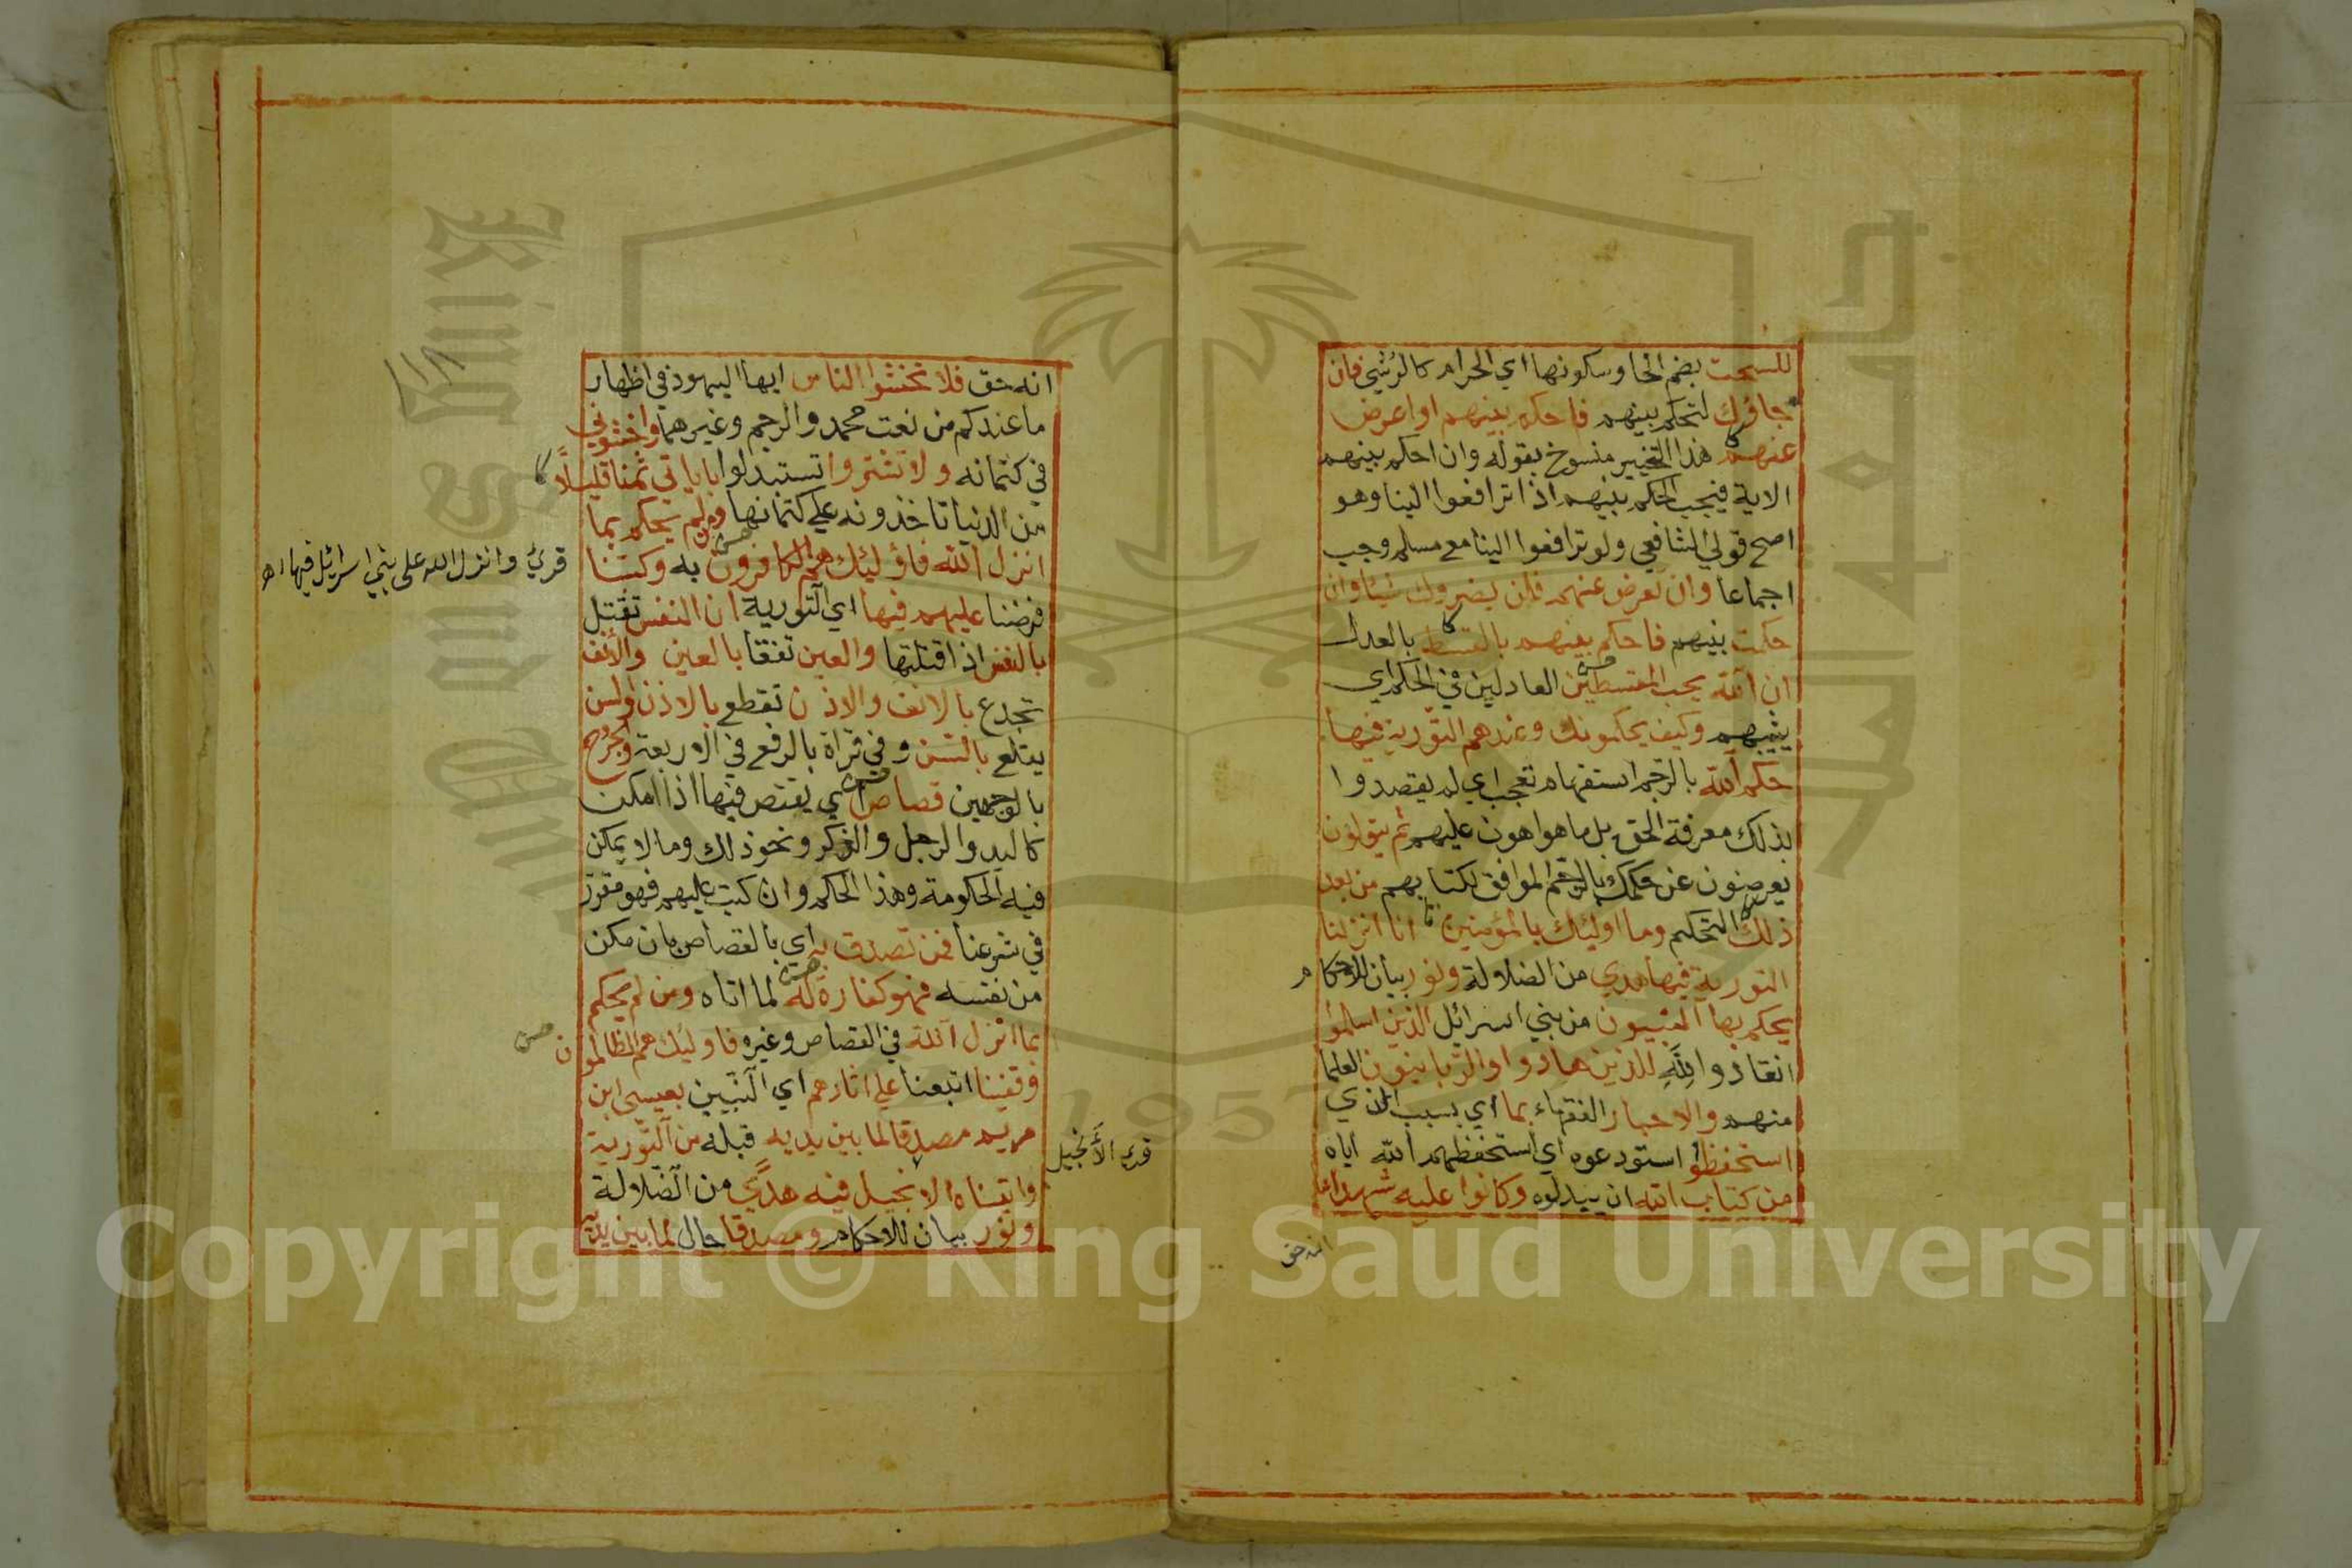 للسحت بضم الحا وسكونها اي الحرام كالرشي فان
جاؤك لتحكم بينهم فاحكم بينهم او اعرض
عنهم هذا التخيير منسوخ بقوله وان احكم بينهم
الاية فيجب الحكم بينهم اذا ترافعوا الينا وهو
اصح قولي الشافعي ولو ترافعوا الينا مع مسلم وجب
اجماعا وان تعرض عنهم فلن يضروك شيئا وان
حكمت بينهم فاحكم بينهم بالقسط بالعدل
ان الله يحب المقسطين العادلين في الحكم اي
يثيبهم وكيف يحكمونك وعندهم التورية فيها
حكم الله بالرجم استفهام تعجب اي لم يقصدوا
بذلك معرفة الحق بل ما هو اهون عليهم ثم يتولون
يعرضون عن حكمك بالرجم الموافق لكتابهم من بعد
ذلك التحكيم وما اوليك بالمؤمنين انا انزلنا
التورية فيها هدي من الضلالة ونور بيان للاحكام
يحكم بها النبيون من بني اسرائل الذين اسلموا
انقادوا لله للذين هادوا والربانيون العلما
منهم والاحبار الفقهاء بما اي بسبب الذي
استحفظوا استودعوه اي استحفظهم الله اياه
من كتاب الله ان يبدلوه وكانوا عليه شهداء
انه حق
انه حق فلا تخشوا الناس ايها اليهود في اظهار
ما عندكم من نعت محمد والرجم وغيرهما واخشوني
في كتمانه ولا تشتروا تستبدلوا باياتي ثمنا قليلًا
من الدنيا تاخذونه علي كتمانها ومن لم يحكم بما
انزل الله فاؤليك هم الكافرون به وكتبنا
قرئ وانزل الله على بني اسرائل فيها اه
فرضنا عليهم فيها اي التورية ان النفس تقتل
بالنفس اذا قتلتها والعين تفقا بالعين والانف
تجدع بالانف والاذن تقطع بالاذن والسن
يقلع بالسن وفي قراة بالرفع في الاربعة والجروح
بالوجهين قصاص اي يقتص فيها اذا امكن
كاليد والرجل والذكر ونحو ذلك وما لا يمكن
فيه الحكومة وهذا الحكم وان كتب عليهم فهو مقرر
في شرعنا فمن تصدق به اي بالقصاص بان مكن
من نفسه فهو كفارة له لما اتاه ومن لم يحكم
بما انزل الله في القصاص وغيره فاوليك هم الظالمون
وقفينا اتبعنا علي اثارهم اي النبيين بعيسي ابن
مريم مصدقا لما بين يديه قبله من التورية
قرئ الأَنجيل
واتيناه الانجيل فيه هدًي من الضلالة
ونور بيان للاحكام ومصدقا حال لما بين يديه
Copyright © King Saud University
1957